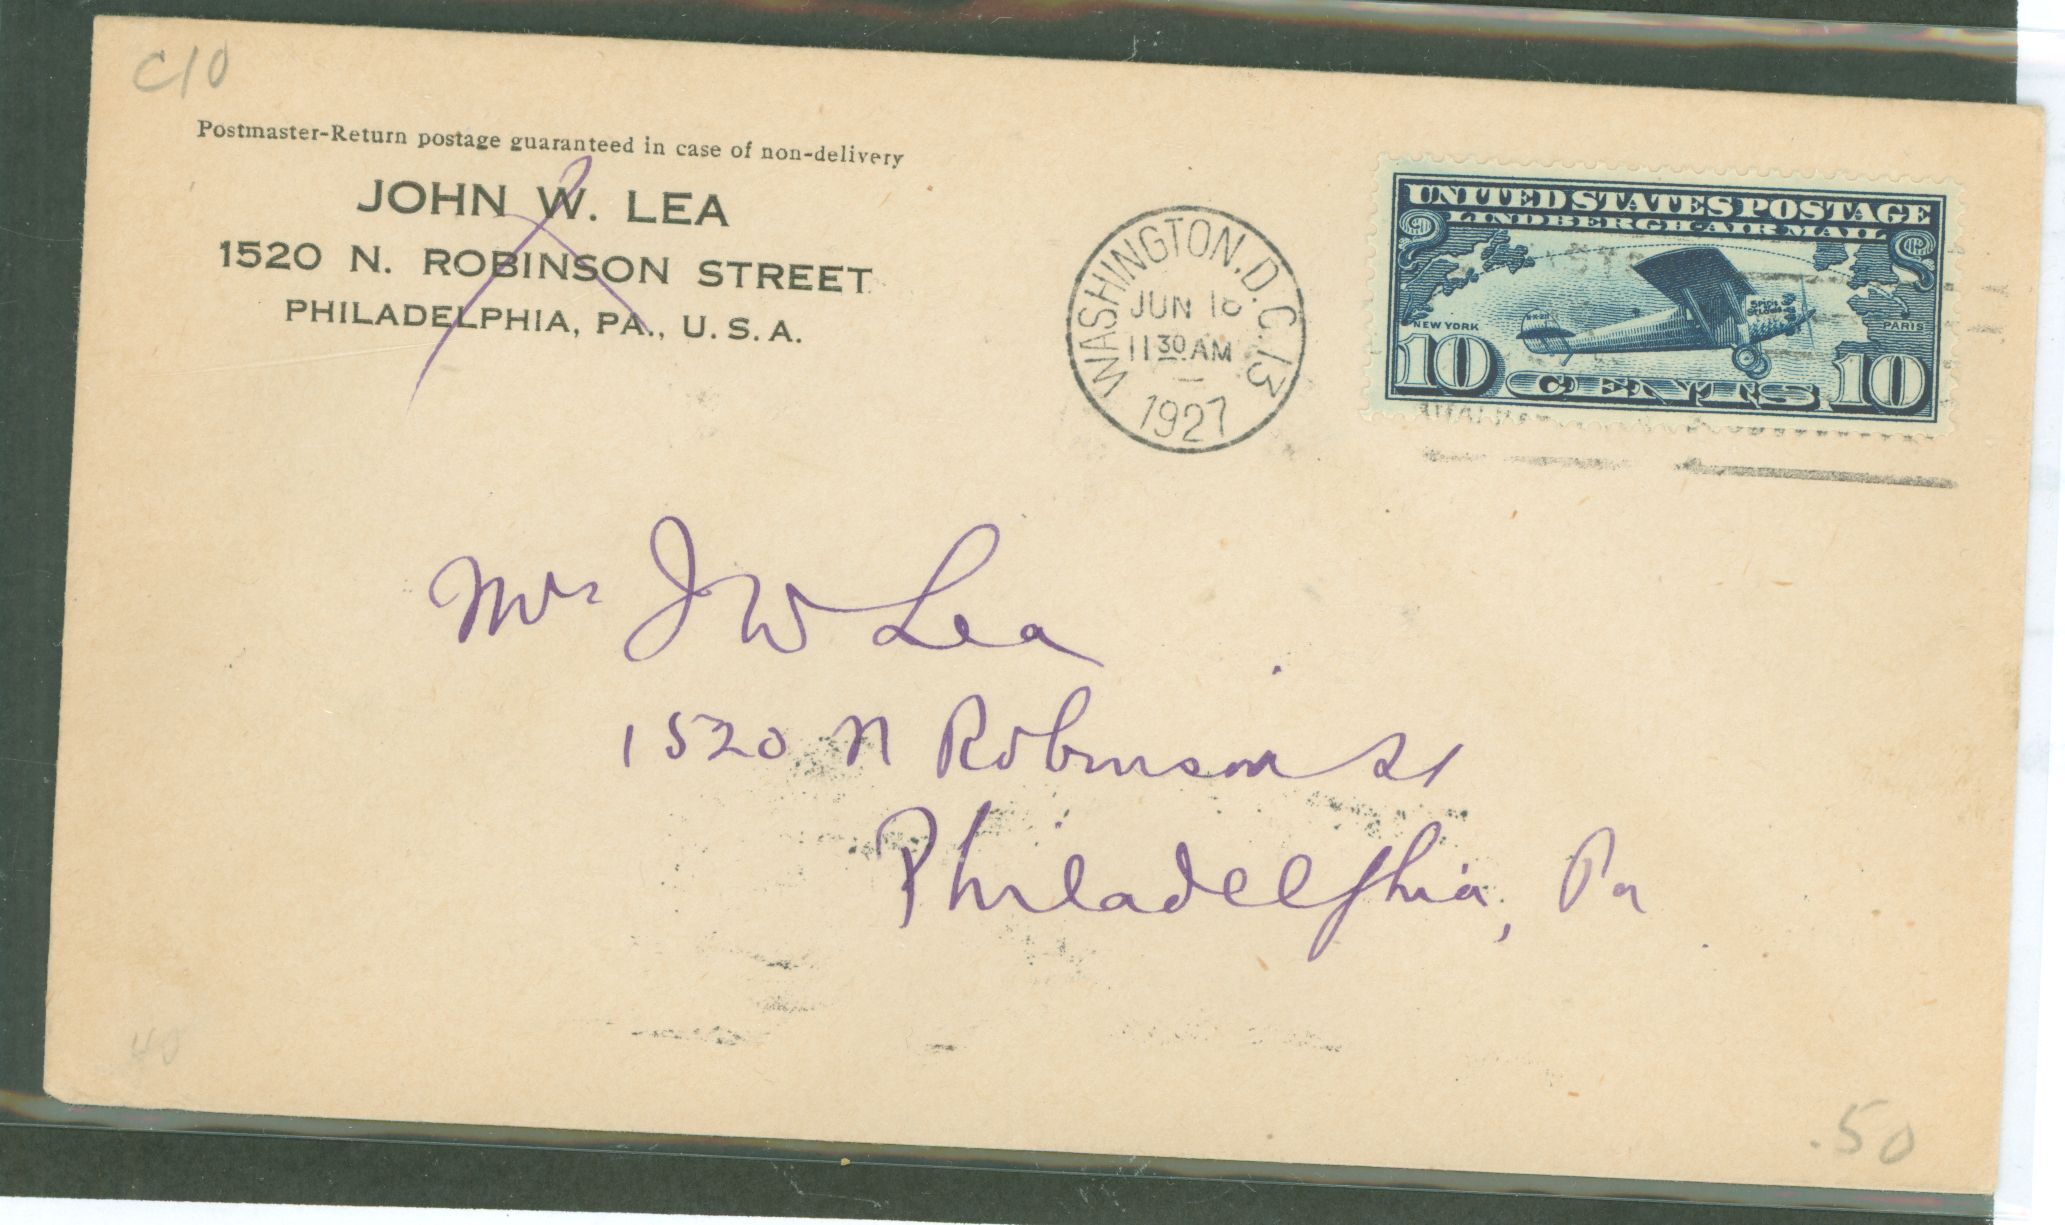 C10
Postmaster-Return postage guaranteed in case of non-delivery
JOHN W. LEA
1520 N. ROBINSON STREET
PHILADELPHIA, PA., U. S. A.
WASHINGTON, D.C. 13
JUN 18
11 30 AM
1927
UNITED STATES POSTAGE
LINDBERGH AIR MAIL
Spirit
of
St. Louis
NEW YORK
PARIS
10 CENTS 10
Mr J W Lea
1520 N Robinson St
Philadelphia, Pa
40
.50